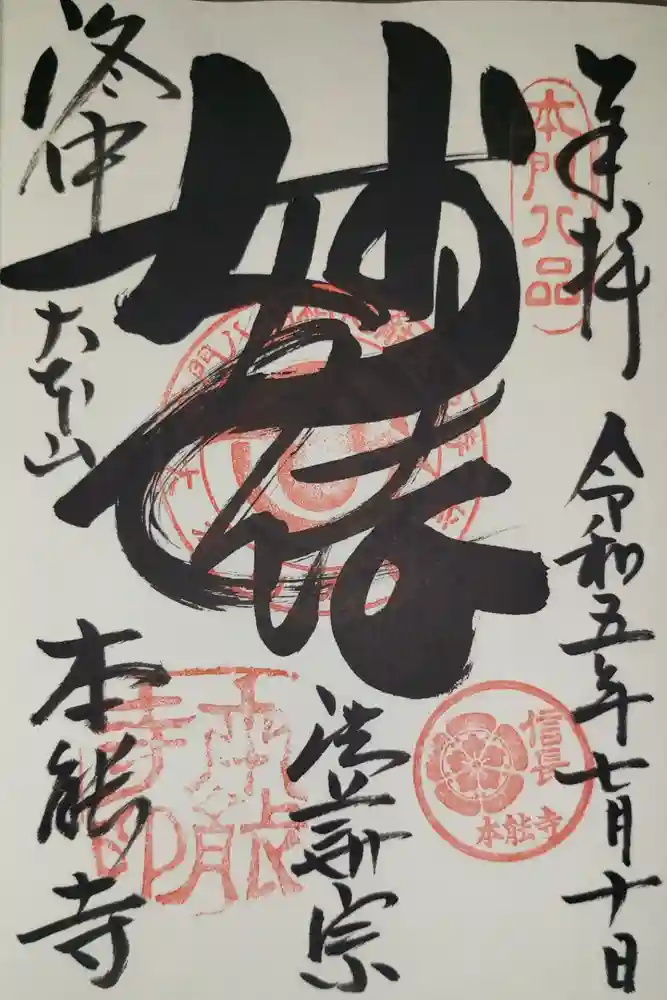 奉拝
令和五年七月十日
本門八品
妙法
法華宗
信長
本能寺
洛中
大本山
本能寺
本能寺印